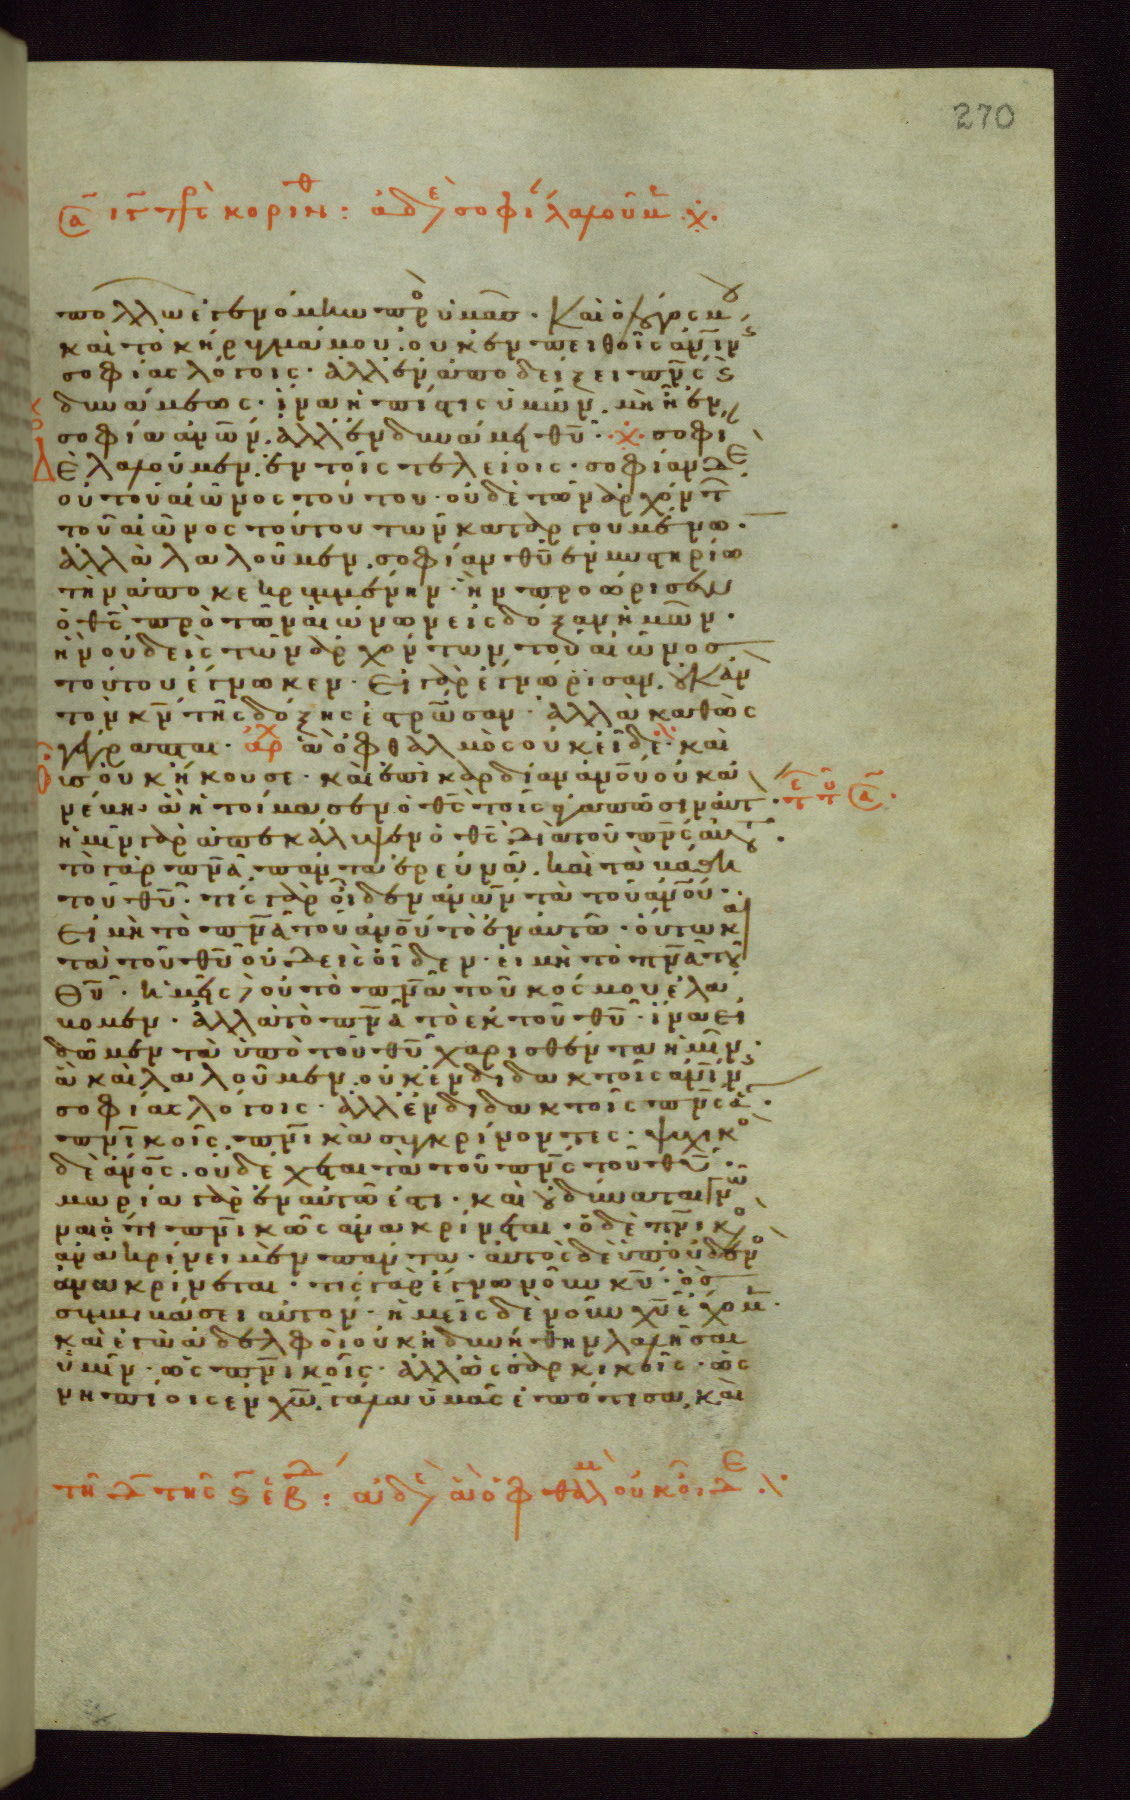 270
πολλῶ ἐγενόμην πρὸ ὑμᾶσ · Καὶ ὁ λόγοσ μου
καὶ τὸ κήρυγμά μου · οὐκ ἐν πειθοῖς ἀνίνης
σοφίας λόγοις · ἀλλ' ἐν ἀποδείξει πνς καὶ
δυνάμεως · ἵνα ἡ πίστις ὑμῶν · μὴ ἦ ἐν
σοφία ἀνων · ἀλλ' ἐν δυνάμει θυ · σοφί
Δὲ λαλοῦμεν · ἐν τοῖς τελείοις · σοφίαν δε
οὐ τοῦ αἰῶνος τούτου · οὐδὲ τῶν ἀρχόντ
τοῦ αἰῶνος τούτου τῶν καταργουμένω ·
ἀλλὰ λαλοῦμεν · σοφίαν θυ ἐν μυστηρίω
τὴν ἀποκεκρυμμένην · ἣν προώρισεν
ὁ θς πρὸ τῶν αἰώνων εἰς δόξαν ἡμῶν ·
ἣν οὐδεὶς τῶν ἀρχόντων τοῦ αἰῶνοσ
τούτου ἔγνωκεν · Εἰ γὰρ ἐγνώρισαν · οὐκ ἂν
τὸν κν τῆς δόξης ἐσταύρωσαν · ἀλλὰ καθὼς
γέγραπται · ἀρχ ἃ ὀφθαλμὸς οὐκ εἶδε · καὶ
οὖς οὐκ ἤκουσε · καὶ ἐπὶ καρδίαν ἀνου οὐκ ἀ
νέβη · ἃ ἡτοίμασεν ὁ θς τοῖς ἀγαπῶσιν αὐτ ·
ἡμῖν γὰρ ἀπεκάλυψεν ὁ θς διὰ τοῦ πνς αὐτοῦ ·
τὸ γὰρ πνα · πάντα ἐρευνᾶ · καὶ τὰ βάθη
τοῦ θυ · τίς γὰρ οἶδεν ἀνων τὰ τοῦ ἀνου ·
Εἰ μὴ τὸ πνα τοῦ ἀνου τὸ ἐν αὐτῶ · οὕτω καὶ
τὰ τοῦ θυ οὐδεὶς οἶδεν · εἰ μὴ τὸ πνα τοῦ
Θυ · ἡμεῖς δὲ οὐ τὸ πνα τοῦ κόσμου ἐλά
βομεν · ἀλλὰ τὸ πνα τὸ ἐκ τοῦ θυ · ἵνα εἰ
δῶμεν τὰ ὑπὸ τοῦ θυ χαρισθέντα ἡμῖν ·
ἃ καὶ λαλοῦμεν · οὐκ ἐν διδακτοῖς ἀνίνης
σοφίας λόγοις · ἀλλ' ἐν διδακτοῖς πνς ἁ ·
πνικοῖς πνικὰ συγκρίνοντες · ψυχικὸ
δὲ ἀνος · οὐ δέχεται τὰ τοῦ πνς τοῦ θυ ·
μωρία γὰρ ἐν αὐτῶ ἐστι · καὶ οὐ δύναται γνῶ
ναι ὅτι πνικῶς ἀνακρίνεται · ὁ δὲ πνικὸ
ἀνακρίνει μὲν πάντα · αὐτὸς δὲ ὑπ' οὐδενὸ
ἀνακρίνεται · τίς γὰρ ἔγνω νοῦν κυ · ὃσ
συμβιβάσει αὐτόν · ἡμεῖς δὲ νοῦν χυ ἔχομ ·
καὶ ἐγὼ ἀδελφοὶ οὐκ ἠδυνήθην λαλῆσαι
ὑμῖν · ὡς πνικοῖς · ἀλλ' ὡς σαρκικοῖς · ὡς
νηπίοις ἐν χω · γάλα ὑμᾶς ἐπότισα · καὶ